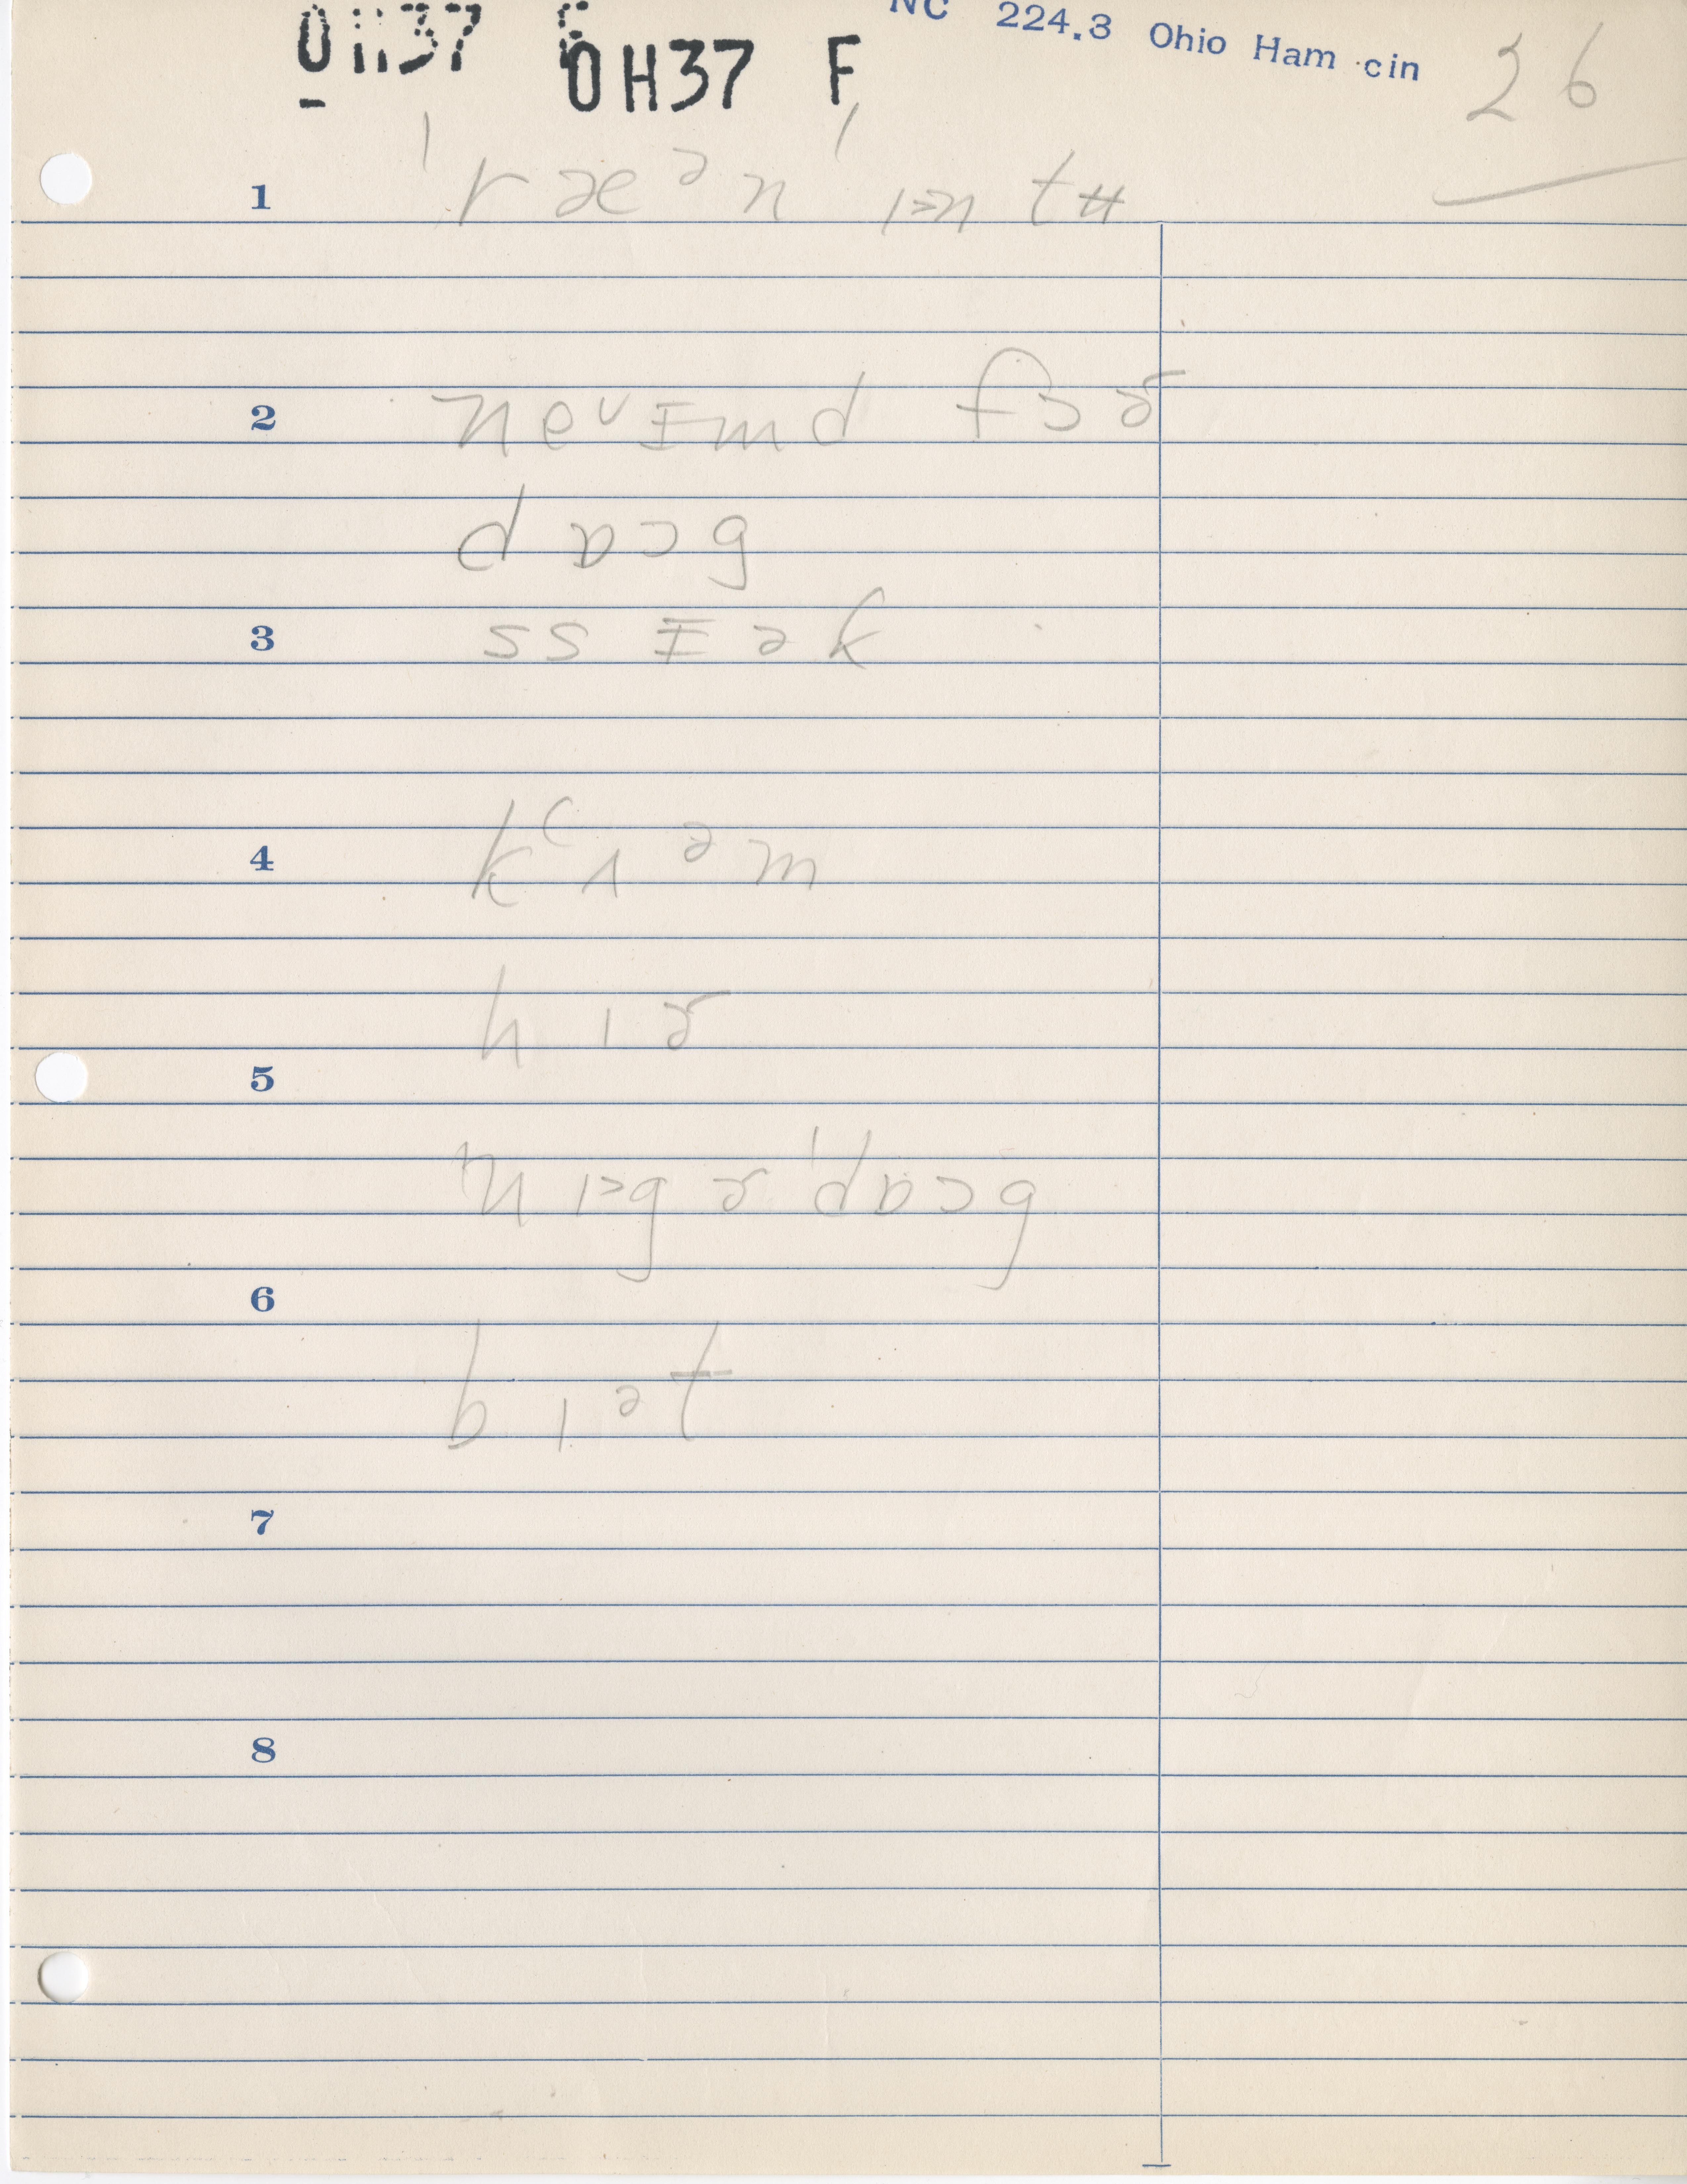 OH37 F
OH37 F
NC 224.3 Ohio Ham cin
26
1 ˈræᵊn ˈɪ>n tʉ
2 neᵛɨmd fɔɚ
dɒɔg
3 ssɨək
4 kʻʌᵊm
hɪɚ
5
nɪ>gɚˈdɒɔg
6
bɪᵊt
7
8